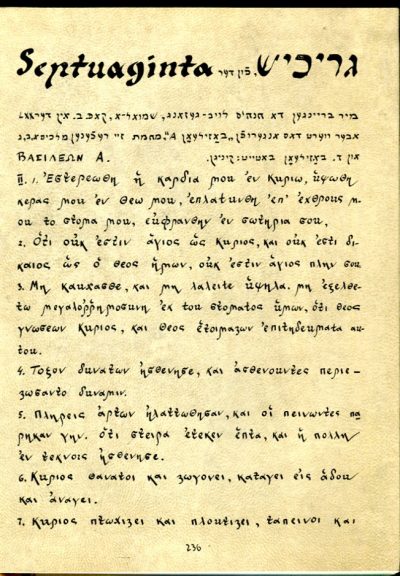 Septuaginta גריכיש, פֿון דער
מיר ברייינגען דאָ חנה'ס לויב-געזאַנג, שמואל-א, קאַפּ. ב. אין
אָבער ווערט דאָס אָנגערופֿן „באַזילעאָן A“. מחמת זיי רעכענען מלכים א, ב, ג
און ד. באַזילעאָן באַטייט: קיניגן. ΒΑΣΙΛΕΩΝ Α.
II. 1. Ἐστερεωθη ἡ καρδια μου ἐν κυριω, ὑψωθη
κερας μου ἐν θεω μου, ἐπλατυνθη ἐπ' ἐχθρους μ-
ου το στομα μου, εὐφρανθην ἐν σωτηρια σου,
2. Ὁτι οὐκ ἐστιν ἁγιος ὡς κυριος, και οὐκ ἐστι δι-
καιος ὡς ὁ θεος ἡμων, οὐκ ἐστιν ἁγιος πλην σου
3. Μη καυχασθε, και μη λαλειτε ὑψηλα. μη ἐξελθε-
τω μεγαλοῤῥημοσυνη ἐκ του στοματος ὑμων, ὁτι θεος
γνωσεων κυριος, και θεος ἑτοιμαζων ἐπιτηδευματα αυ-
του.
4. Τοξον δυνατων ἠσθενησε, και ἀσθενουντες περιε-
ζωσαντο δυναμιν.
5. Πληρεις ἀρτων ἠλαττωθησαν, και οἱ πεινωντες πα
ρηκαν γην. ὁτι στειρα ἐτεκεν ἑπτα, και ἡ πολλη
ἐν τεκνοις ἠσθενησε.
6. Κυριος θανατοι και ζωγονει, καταγει εἰς ἁδου
και ἀναγει.
7. Κυριος πτωχιζει και πλουτιζει, ταπεινοι και
236